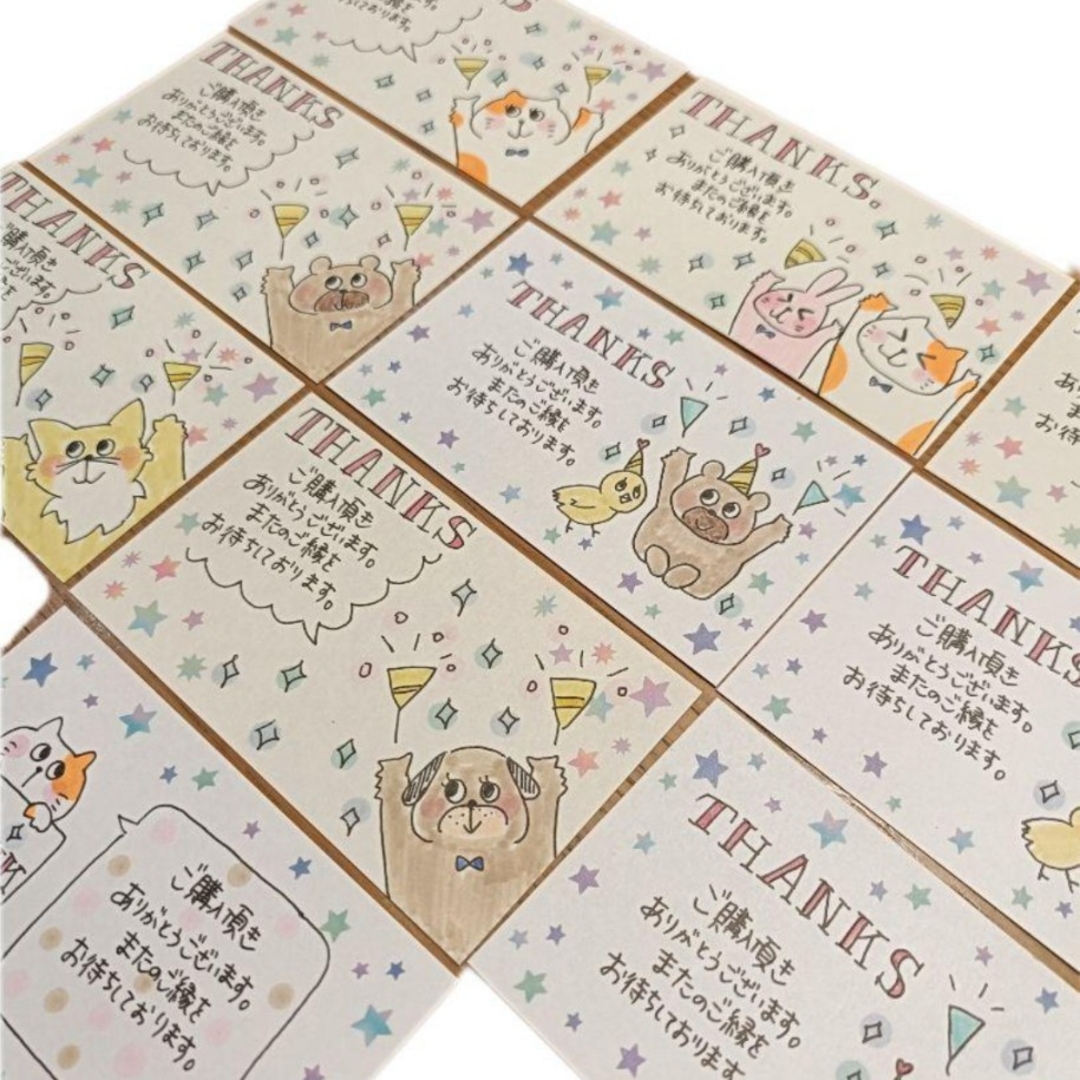 す。
THANKS
ご購入頂き
ありがとうございます。
またのご縁を
お待ちしております。
THANKS.
ご購入頂き
ありがとうございます。
またのご縁を
お待ちしております。
THANKS
ご購入頂き
ます。
THANKS
ご購入頂き
ありがとうございます。
またのご縁を
お待ちしております。
THANKS
ご購入頂き
ありがとうございます。
またのご縁を
お待ちしております。
THANKS
ご購入頂き
ありがとうございます。
またのご縁を
お待ちしております。
ご購入頂き
ありがとうございます。
またのご縁を
お待ちしております。
THANKS
ご購入頂き
ありがとうございます。
またのご縁を
お待ちしております